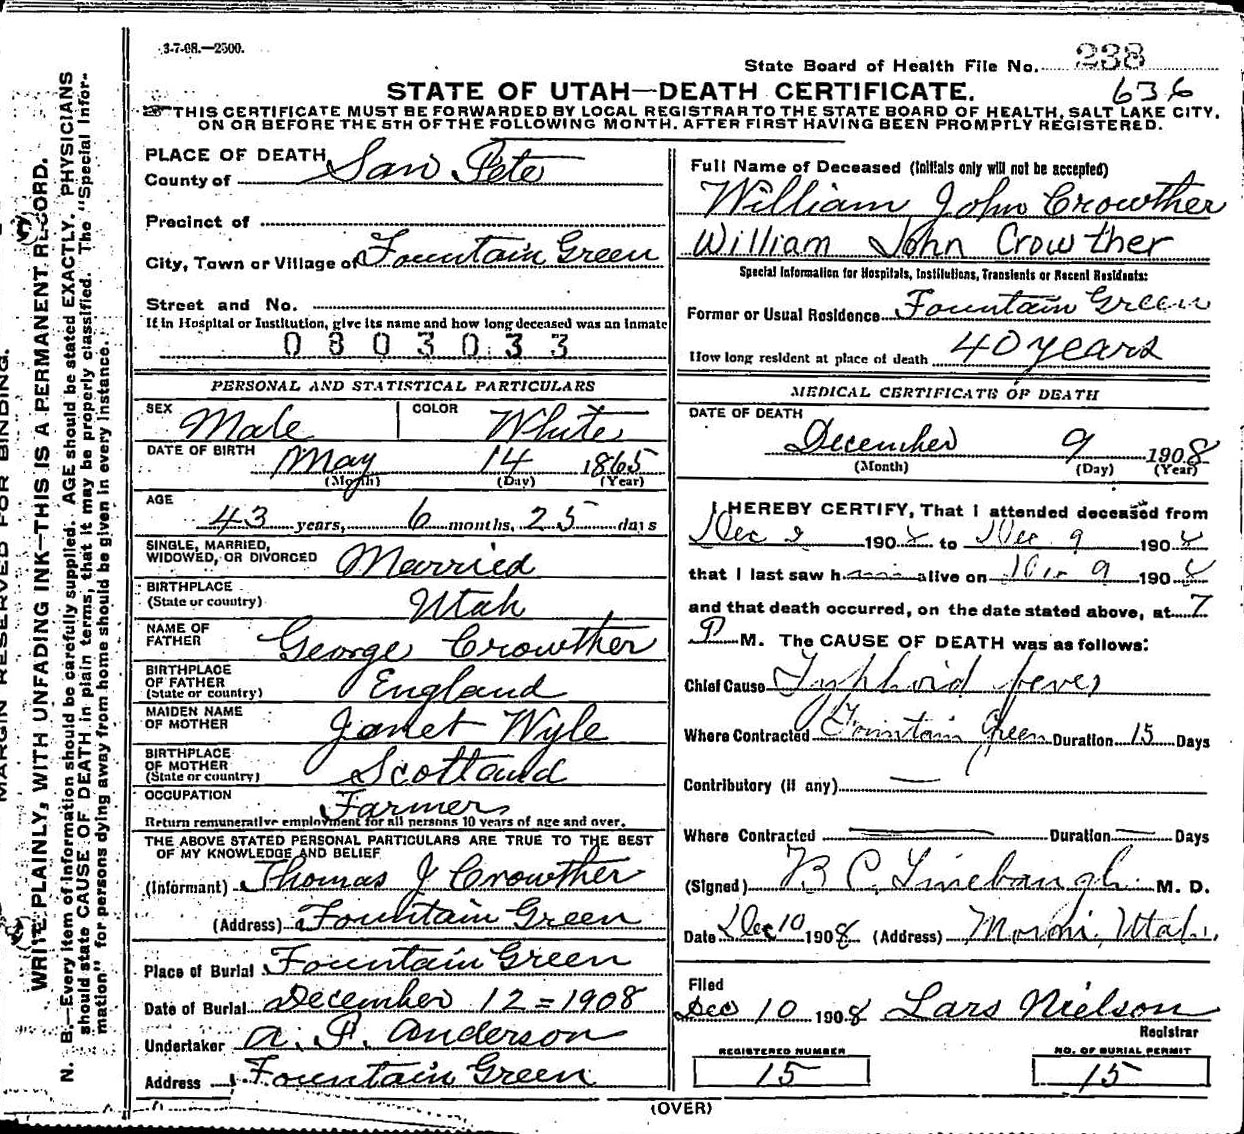 3-7-08.—2500.
State Board of Health File No. 238
STATE OF UTAH—DEATH CERTIFICATE. 636
THIS CERTIFICATE MUST BE FORWARDED BY LOCAL REGISTRAR TO THE STATE BOARD OF HEALTH, SALT LAKE CITY,
ON OR BEFORE THE 5TH OF THE FOLLOWING MONTH, AFTER FIRST HAVING BEEN PROMPTLY REGISTERED.
MARGIN RESERVED FOR BINDING.
WRITE PLAINLY, WITH UNFADING INK—THIS IS A PERMANENT RECORD.
N. B.—Every item of information should be carefully supplied. AGE should be stated EXACTLY. PHYSICIANS
should state CAUSE OF DEATH in plain terms, that it may be properly classified. The "Special Infor-
mation" for persons dying away from home should be given in every instance.
PLACE OF DEATH
County of San Pete
Precinct of
City, Town or Village of Fountain Green
Street and No.
If in Hospital or Institution, give its name and how long deceased was an inmate
0 8 0 3 0 3 3
PERSONAL AND STATISTICAL PARTICULARS
SEX Male COLOR White
DATE OF BIRTH May 14 1865
(Month) (Day) (Year)
AGE
43 years, 6 months, 25 days
SINGLE, MARRIED,
WIDOWED, OR DIVORCED Married
BIRTHPLACE
(State or country) Utah
NAME OF
FATHER George Crowther
BIRTHPLACE
OF FATHER England
(State or country)
MAIDEN NAME
OF MOTHER Janet Wyle
BIRTHPLACE
OF MOTHER Scotland
(State or country)
OCCUPATION Farmer
Return remunerative employment for all persons 10 years of age and over.
THE ABOVE STATED PERSONAL PARTICULARS ARE TRUE TO THE BEST
OF MY KNOWLEDGE AND BELIEF
(Informant) Thomas J Crowther
(Address) Fountain Green
Place of Burial Fountain Green
Date of Burial December 12=1908
Undertaker A. P. Anderson
Address Fountain Green
Full Name of Deceased (Initials only will not be accepted)
William John Crowther
William John Crowther
Special Information for Hospitals, Institutions, Transients or Recent Residents:
Former or Usual Residence Fountain Green
How long resident at place of death 40 years
MEDICAL CERTIFICATE OF DEATH
DATE OF DEATH
December 9 1908
(Month) (Day) (Year)
I HEREBY CERTIFY, That I attended deceased from
Dec 2 1908 to Dec 9 1908
that I last saw him alive on Dec 9 1908
and that death occurred, on the date stated above, at 7
P M. The CAUSE OF DEATH was as follows:
Chief Cause Typhoid fever
Where Contracted Fountain Green Duration 15 Days
Contributory (if any) —
Where Contracted — Duration — Days
(Signed) B C Linebaugh M. D.
Date Dec 10 1908 (Address) Moroni, Utah.
Filed
Dec 10 1908 Lars Nielson
Registrar
REGISTERED NUMBER NO. OF BURIAL PERMIT
15 15
(OVER)